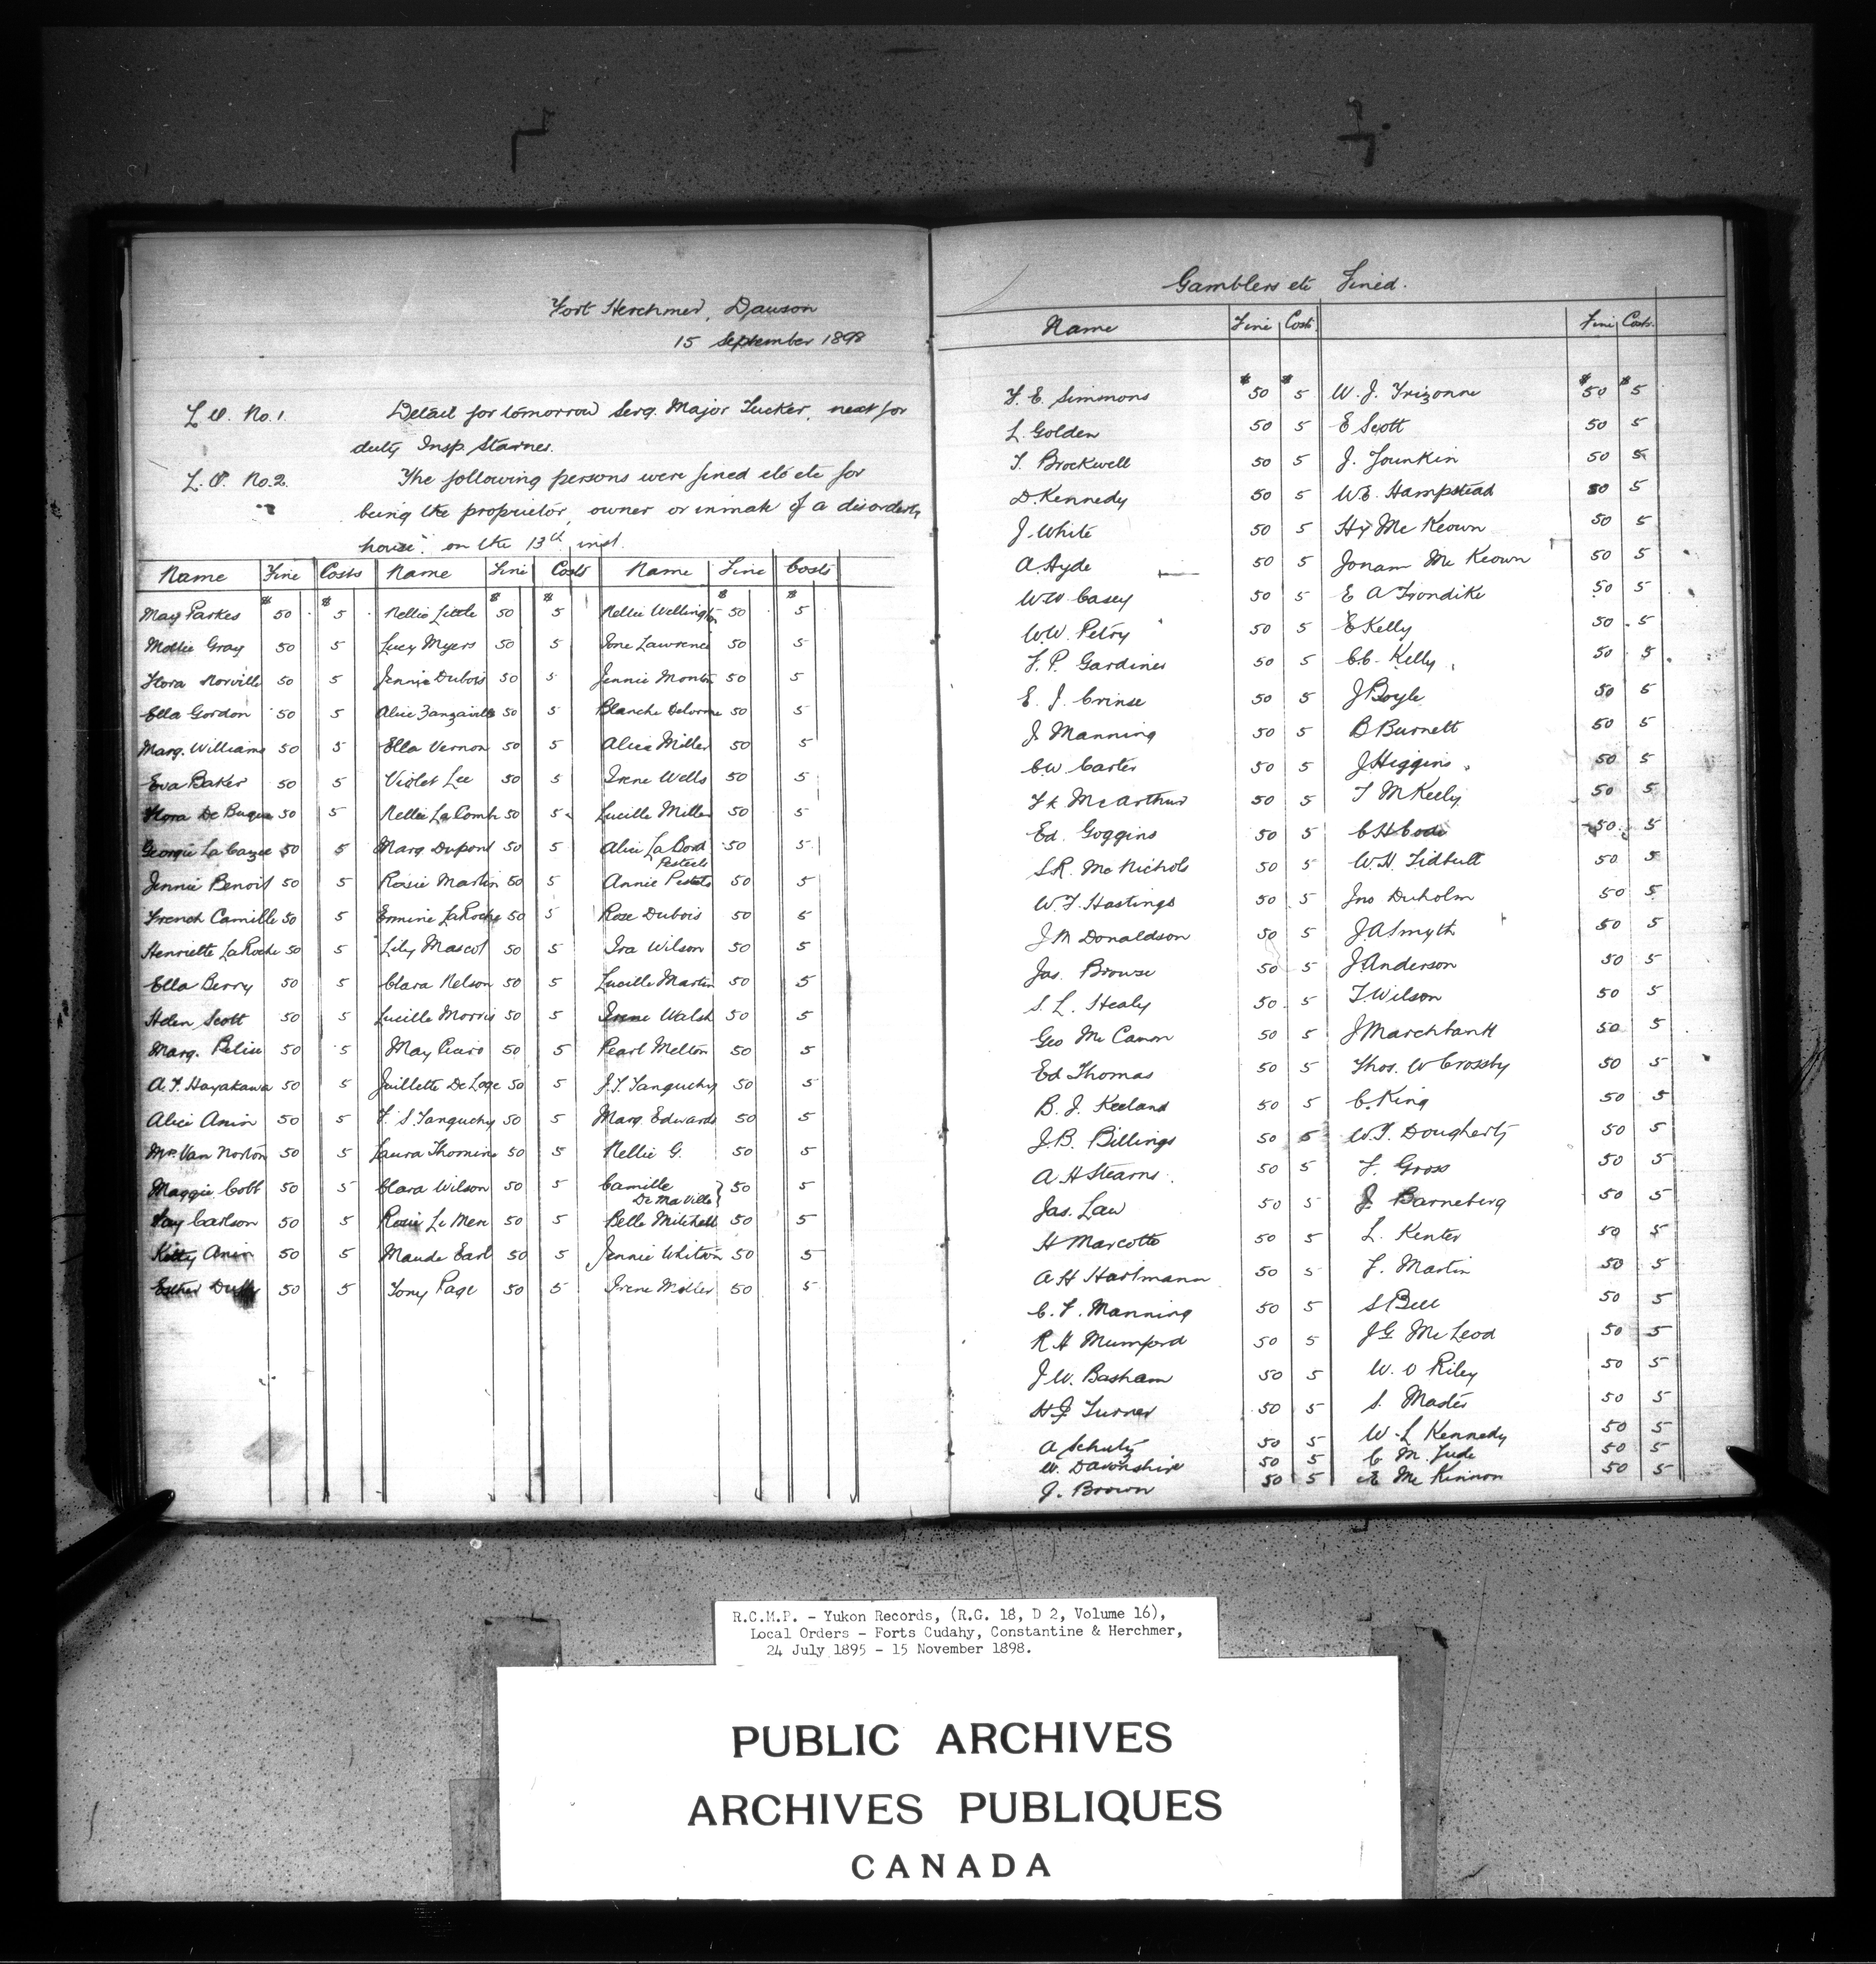 Fort Herchmer, Dawson
15 September 1898
L.O. No. 1. Detail for tomorrow Serg. Major Tucker, next for
duty Insp. Starnes.
L.O. No. 2. The following persons were fined etc etc for
being the proprietor, owner or inmate of a disorderly
house". on the 13th inst.
Name Fine Costs Name Fine Costs Name Fine Costs
May Parkes $50 $5 Nellie Little $50 $5 Nellie Wellington $50 $5
Mollie Gray 50 5 Lucy Myers 50 5 Ione Lawrence 50 5
Flora Norville 50 5 Jennie Dubois 50 5 Jennie Monton 50 5
Ella Gordon 50 5 Alice 50 5 Blanche Delorme 50 5
Marg. Williams 50 5 Ella Vernon 50 5 Alice Miller 50 5
Eva Baker 50 5 Violet Lee 50 5 Irene Wells 50 5
Flora De 50 5 Nellie La Comb 50 5 Lucille Miller 50 5
Georgie La 50 5 Marg Dupont 50 5 Alice La Bord 50 5
Pestels
Jennie Benoit 50 5 Rosie Martin 50 5 Annie 50 5
French Camille 50 5 Ermine LaRoche 50 5 Rose Dubois 50 5
Henriette LaRoche 50 5 Lily Mascot 50 5 Ira Wilson 50 5
Ella Berry 50 5 Clara Nelson 50 5 Lucille Martin 50 5
Helen Scott 50 5 Lucille Morris 50 5 Irene Walsh 50 5
Marg. 50 5 May 50 5 Pearl Melton 50 5
A.T. Hayakawa 50 5 Juillette De Loge 50 5 J.T. Tanguchy 50 5
Alice Amin 50 5 F. S Tanguchy 50 5 Marg. Edwards 50 5
Mrs. Van Norton 50 5 Laura Thomins 50 5 Nellie G. 50 5
Maggie Cobb 50 5 Clara Wilson 50 5 Camille
De Maville } 50 5
Fay Carlson 50 5 Rosie Le Mere 50 5 Belle Mitchell 50 5
Kitty Amin 50 5 Maude Earl 50 5 Jennie Whitson 50 5
Esther Duffy 50 5 Tony Page 50 5 Irene Miller 50 5
Gamblers etc Fined.
Name Fine Costs Fine Costs.
F. E. Simmons $50 $5 W. J. Trizonne $50 $5
L. Golden 50 5 E Scott 50 5
T. Brockwell 50 5 J. Younkin 50 5
D. Kennedy 50 5 W.E. Hampstead 50 5
J. White 50 5 Hy Mc Keown 50 5
A. Hyde 50 5 Jonam Mc Keown 50 5
W.W. Casey 50 5 E A Trondike 50 5
W.W. Petry 50 5 E Kelly 50 5
F. P. Gardiner 50 5 C.C. Kelly 50 5
E. J. Crinse 50 5 J Boyle 50 5
J. Manning 50 5 B Burnett 50 5
C.W. Carter 50 5 J Higgins 50 5
F k McArthur 50 5 T M Keely 50 5
Ed. Goggins 50 5 C H Code 50 5
S.R. Mc Nichols 50 5 W.H. Tidbull 50 5
W.T. Hastings 50 5 Jno Duholm 50 5
J M Donaldson 50 5 J A Smyth 50 5
Jas. Browse 50 5 J Anderson 50 5
S. L. Healy 50 5 T Wilson 50 5
Geo Mc Canon 50 5 J Marchbank 50 5
Ed Thomas 50 5 Thos. W Crossby 50 5
B. J. Keeland 50 5 C. King 50 5
J.B. Billings 50 5 W.T. Dougherty 50 5
A H Stearns. 50 5 F. Gross 50 5
Jas. Law 50 5 J. Barneberg 50 5
H Marcotte 50 5 L. Kenter 50 5
A H Hartmann 50 5 F. Martin 50 5
C. F. Manning 50 5 S Bell 50 5
R H Mumford 50 5 J G Mc Leod 50 5
J W. Basham 50 5 W. O Riley 50 5
H J Turner 50 5 S. Master 50 5
A Schulz 50 5 W. L Kennedy 50 5
W. Davonshire 50 5 C M. Jude 50 5
J. Brown 50 5 E Mc Kinnon 50 5
R.C.M.P. - Yukon Records, (R.G. 18, D 2, Volume 16),
Local Orders - Forts Cudahy, Constantine & Herchmer,
24 July 1895 - 15 November 1898.
PUBLIC ARCHIVES
ARCHIVES PUBLIQUES
CANADA